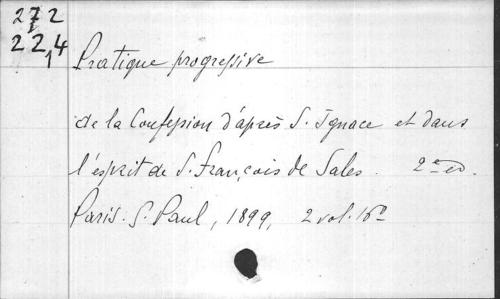 272
224
1
Pratique progressive
de la Confession d'après S. Ignace et dans
l'esprit de S. François de Sales. 2e ed.
Paris. S. Paul, 1899, 2 vol. 16º